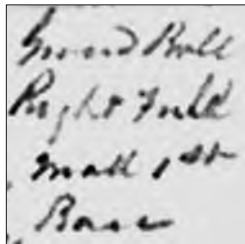 Ground Ball
Right Field
, Small 1st
, Base